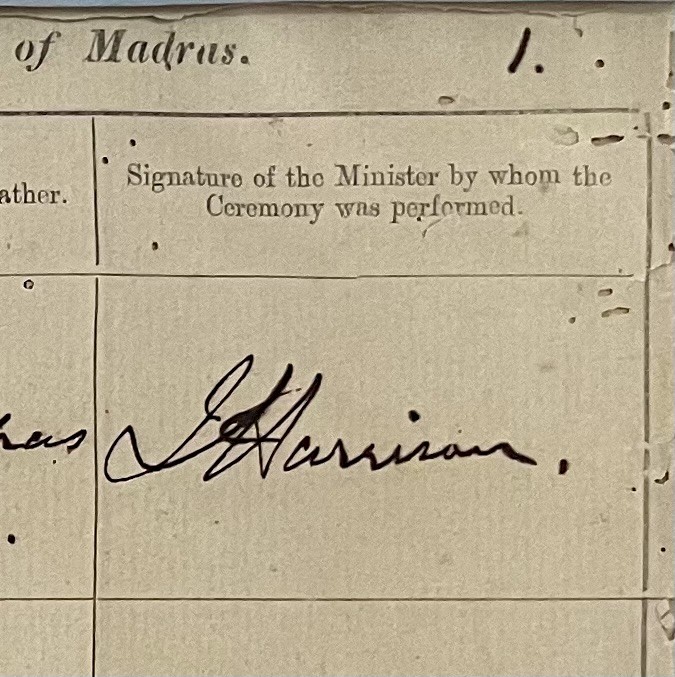 of Madras. 1.
ather.
Signature of the Minister by whom the
Ceremony was performed.
ras
J Harrison.